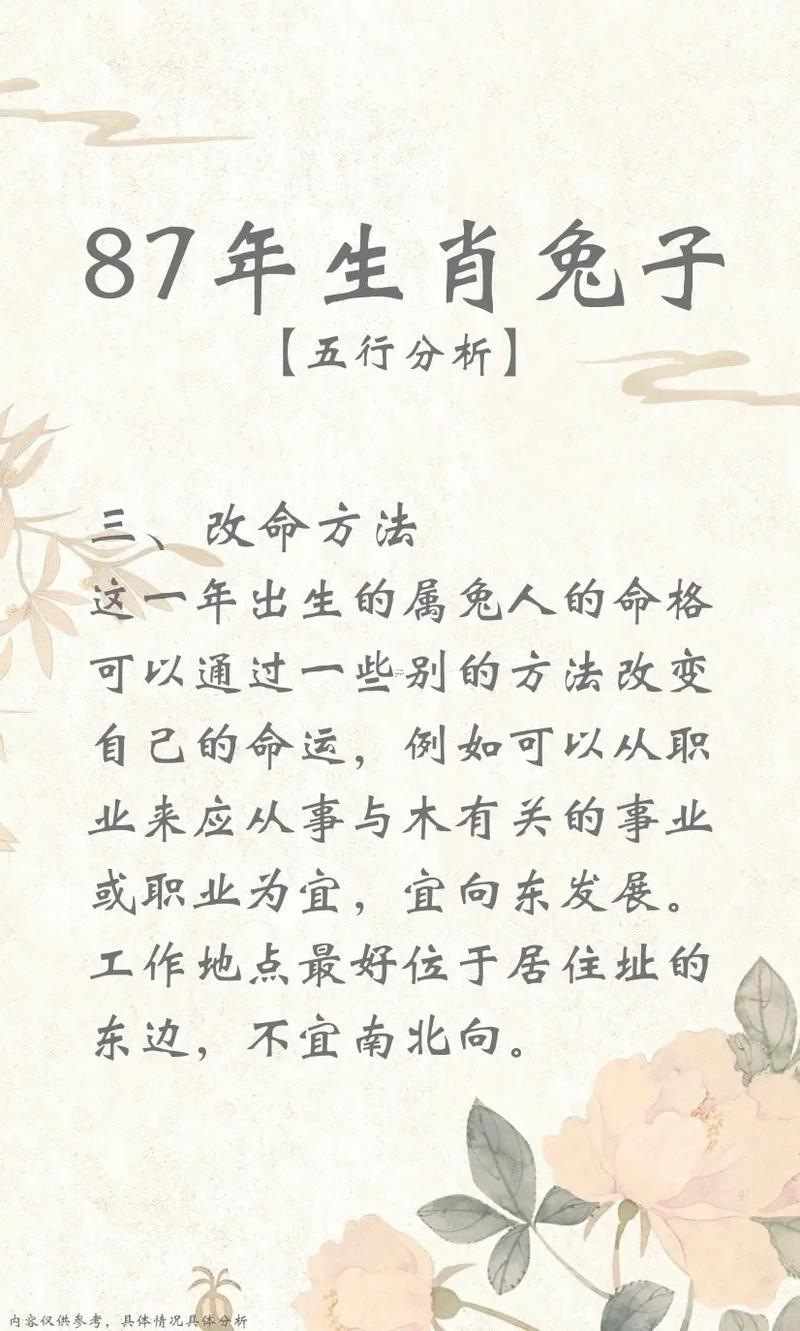 87年生肖兔子
【五行分析】
三、改命方法
这一年出生的属兔人的命格
可以通过一些别的方法改变
自己的命运，例如可以从职
业来应从事与木有关的事业
或职业为宜，宜向东发展。
工作地点最好位于居住址的
东边，不宜南北向。
内容仅供参考，具体情况具体分析